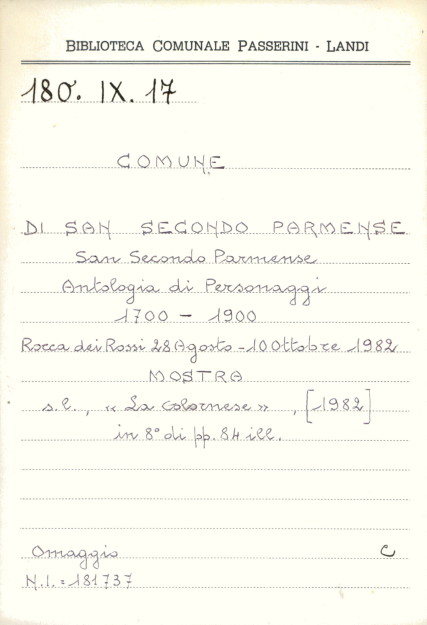 BIBLIOTECA COMUNALE PASSERINI - LANDI
180. IX. 17
COMUNE
DI SAN SECONDO PARMENSE
San Secondo Parmense
Antologia di Personaggi
1700 - 1900
Rocca dei Rossi 28 Agosto - 10 Ottobre 1982
MOSTRA
s.l., « La Colornese », [1982]
in 8° di pp. 84 ill.
Omaggio C
N.I. = 181737